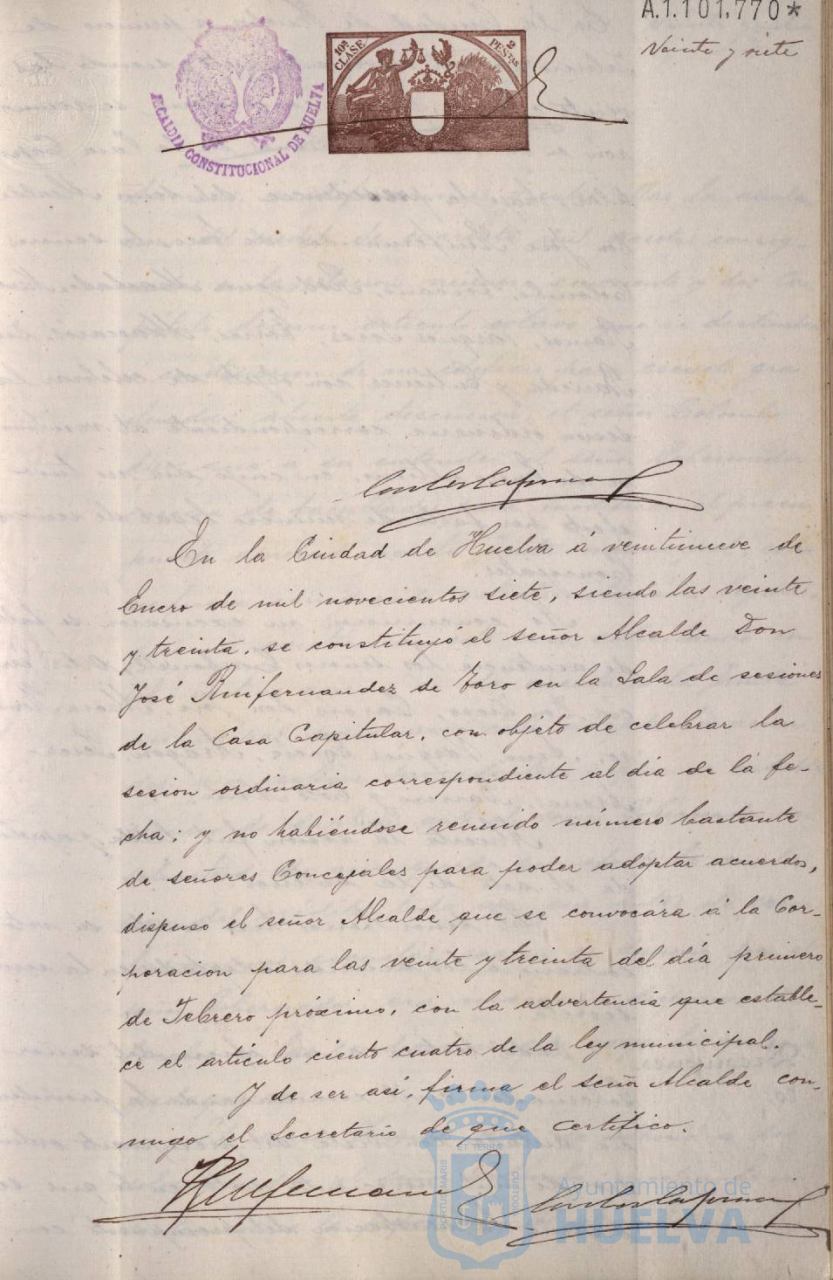 A.1.101,770*
Veinte y siete
ALCALDIA CONSTITUCIONAL DE HUELVA
10ª CLASE
2 PESETAS
En la Ciudad de Huelva á veintinueve de
Enero de mil novecientos siete, siendo las veinte
y treinta, se constituyó el señor Alcalde Don
José Ruifernandez de Toro en la Sala de sesiones
de la Casa Capitular, con objeto de celebrar la
sesion ordinaria correspondiente al dia de la fe-
cha; y no habiéndose reunido número bastante
de señores Concejales para poder adoptar acuerdos,
dispuso el señor Alcalde que se convocára á la Cor-
poracion para las veinte y treinta del día primero
de Febrero próximo, con la advertencia que estable-
ce el artículo ciento cuatro de la ley municipal.
Y de ser así, firma el señor Alcalde con-
migo el Secretario de que certifico.
Ayuntamiento de
HUELVA